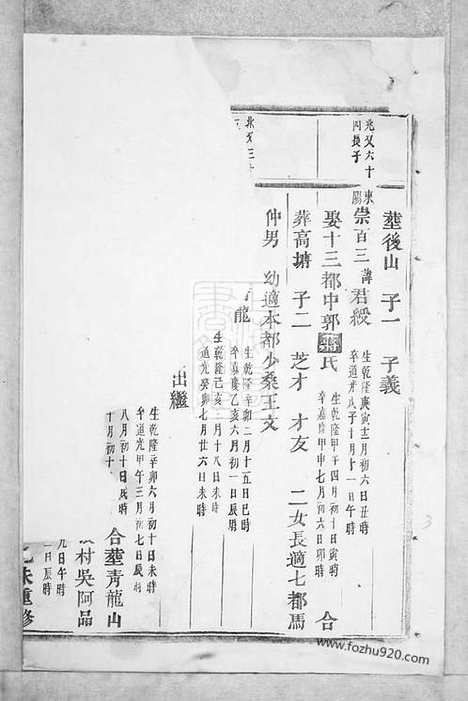 兆父六十
四長子
塟後山 子一 子義
東陽崇百三 諱君綬
生乾隆庚寅十二月初六日丑時
卒道光戊子十月十一日午時
娶十三都中郭蔣氏
生乾隆甲午四月初十日寅時
卒嘉慶甲申七月初六日卯時
合
葬高塘 子二 芝才 才友 二女長適七都馬
仲男 幼適本都少桑王文
龍
生乾隆辛卯二月十五日巳時
卒嘉慶乙亥六月初一日辰時
生乾隆己亥 月十八日未時
道光癸卯七月廿六日未時
出繼
生乾隆辛卯六月初十日未時
卒道光甲午三月初七日辰時
八月初十日辰時
十月初十
合塟青龍山
村吳阿品
九日午時
一日辰時
乙未重修
www.fozhu920.com